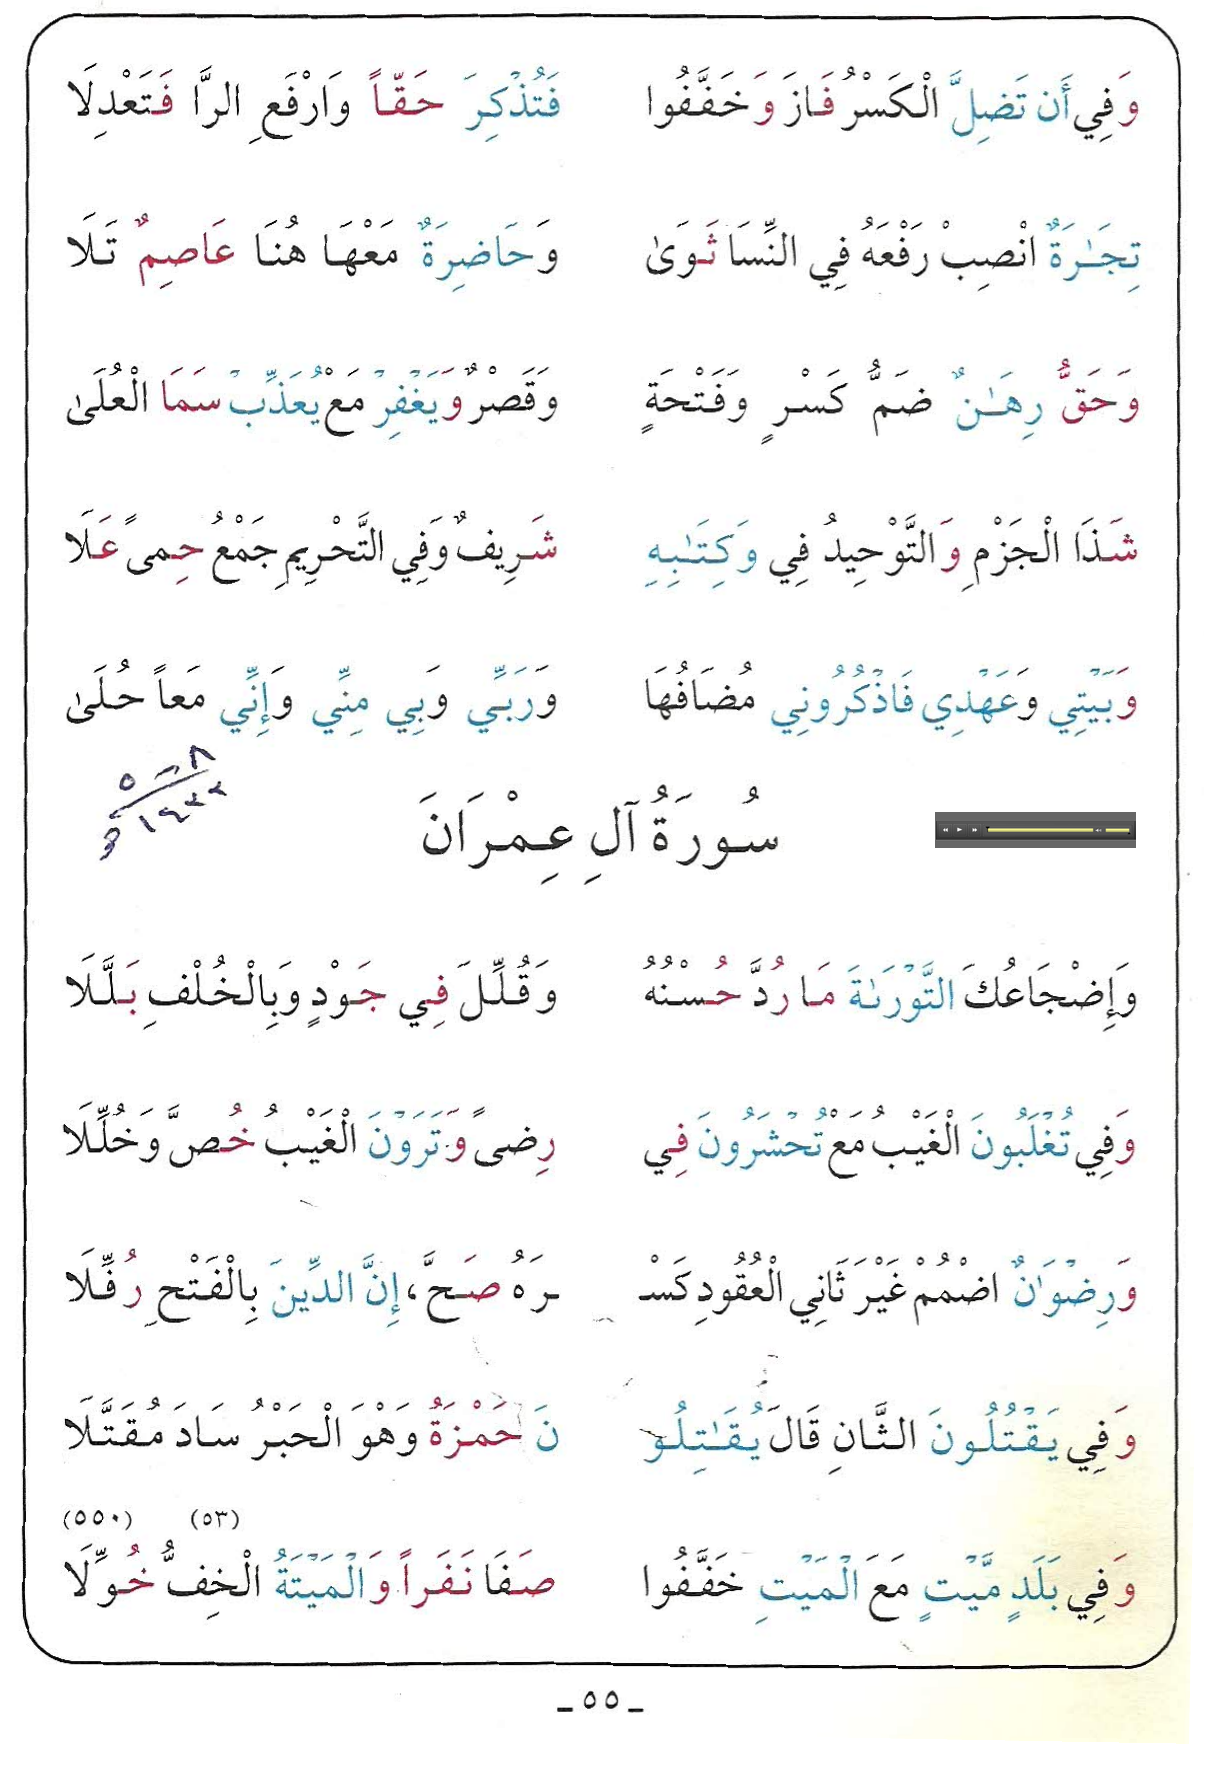 وَفِي أَن تَضِلَّ الْكَسْرُ فَازَ وَخَفَّفُوا فَتُذْكِرَ حَقّاً وَارْفَعِ الرَّا فَتَعْدِلَا
تِجَـٰرَةٌ انْصِبْ رَفْعَهُ فِي النِّسَا ثَوَىٰ وَحَاضِرَةٌ مَعْهَا هُنَا عَاصِمٌ تَلَا
وَحَقُّ رِهَـٰنٌ ضَمُّ كَسْرٍ وَفَتْحَةٍ وَقَصْرٌ وَيَغْفِرْ مَعْ يُعَذِّبْ سَمَا الْعُلَىٰ
شَذَا الْجَزْمِ وَالتَّوْحِيدُ فِي وَكِتَـٰبِهِ شَرِيفٌ وَفِي التَّحْرِيمِ جَمْعُ حِمىً عَلَا
وَبَيْتِي وَعَهْدِي فَاذْكُرُونِي مُضَافُهَا وَرَبِّي وَبِي مِنِّي وَإِنِّي مَعاً حُلَىٰ
٨ - ٥
١٤٢٢ هـ
سُورَةُ آلِ عِمْرَانَ
وَإِضْجَاعُكَ التَّوْرَىٰةَ مَا رُدَّ حُسْنُهُ وَقُلِّلَ فِي جَوْدٍ وَبِالْخُلْفِ بَلَّلَا
وَفِي تُغْلَبُونَ الْغَيْبُ مَعْ تُحْشَرُونَ فِي رِضىً وَتَرَوْنَ الْغَيْبُ خُصَّ وَخُلِّلَا
وَرِضْوَٰنٌ اضْمُمْ غَيْرَ ثَانِي الْعُقُودِ كَسْـ ـرَهُ صَحَّ، إِنَّ الدِّينَ بِالْفَتْحِ رُفِّلَا
وَفِي يَقْتُلُونَ الثَّانِ قَالَ يُقَـٰتِلُو نَ حَمْزَةُ وَهْوَ الْحَبْرُ سَادَ مُقَتَّلَا
(٥٣) (٥٥٠)
وَفِي بَلَدٍ مَّيْتٍ مَعَ الْمَيْتِ خَفَّفُوا صَفَا نَفَراً وَالْمَيْتَةُ الْخِفُّ خُوِّلَا
ـ ٥٥ ـ